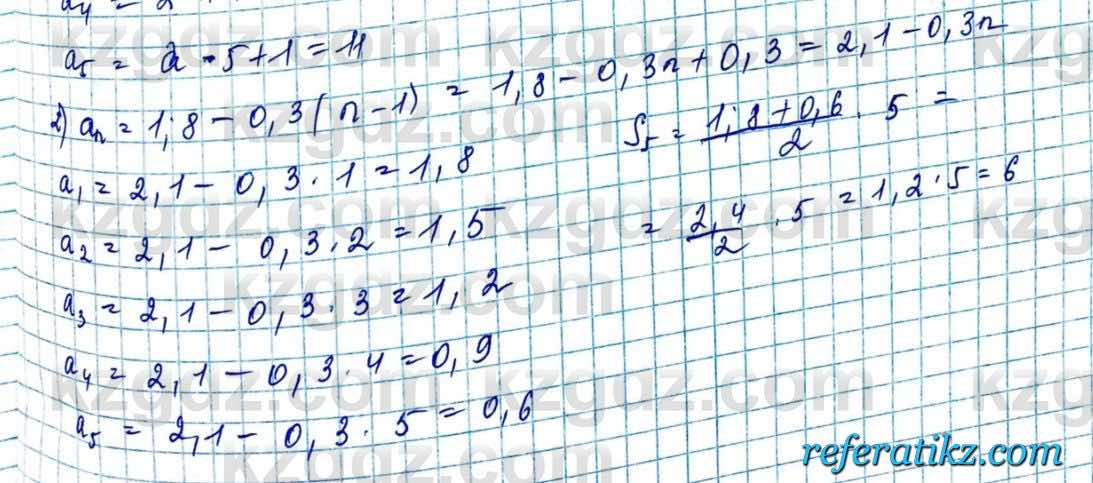 a₅ = 2 · 5 + 1 = 11
2) aₙ = 1,8 − 0,3(n − 1) = 1,8 − 0,3n + 0,3 = 2,1 − 0,3n
a₁ = 2,1 − 0,3 · 1 = 1,8
a₂ = 2,1 − 0,3 · 2 = 1,5
a₃ = 2,1 − 0,3 · 3 = 1,2
a₄ = 2,1 − 0,3 · 4 = 0,9
a₅ = 2,1 − 0,3 · 5 = 0,6
S₅ = (1,8 + 0,6)/2 · 5 =
= 2,4/2 · 5 = 1,2 · 5 = 6
kzgdz.com
referatikz.com